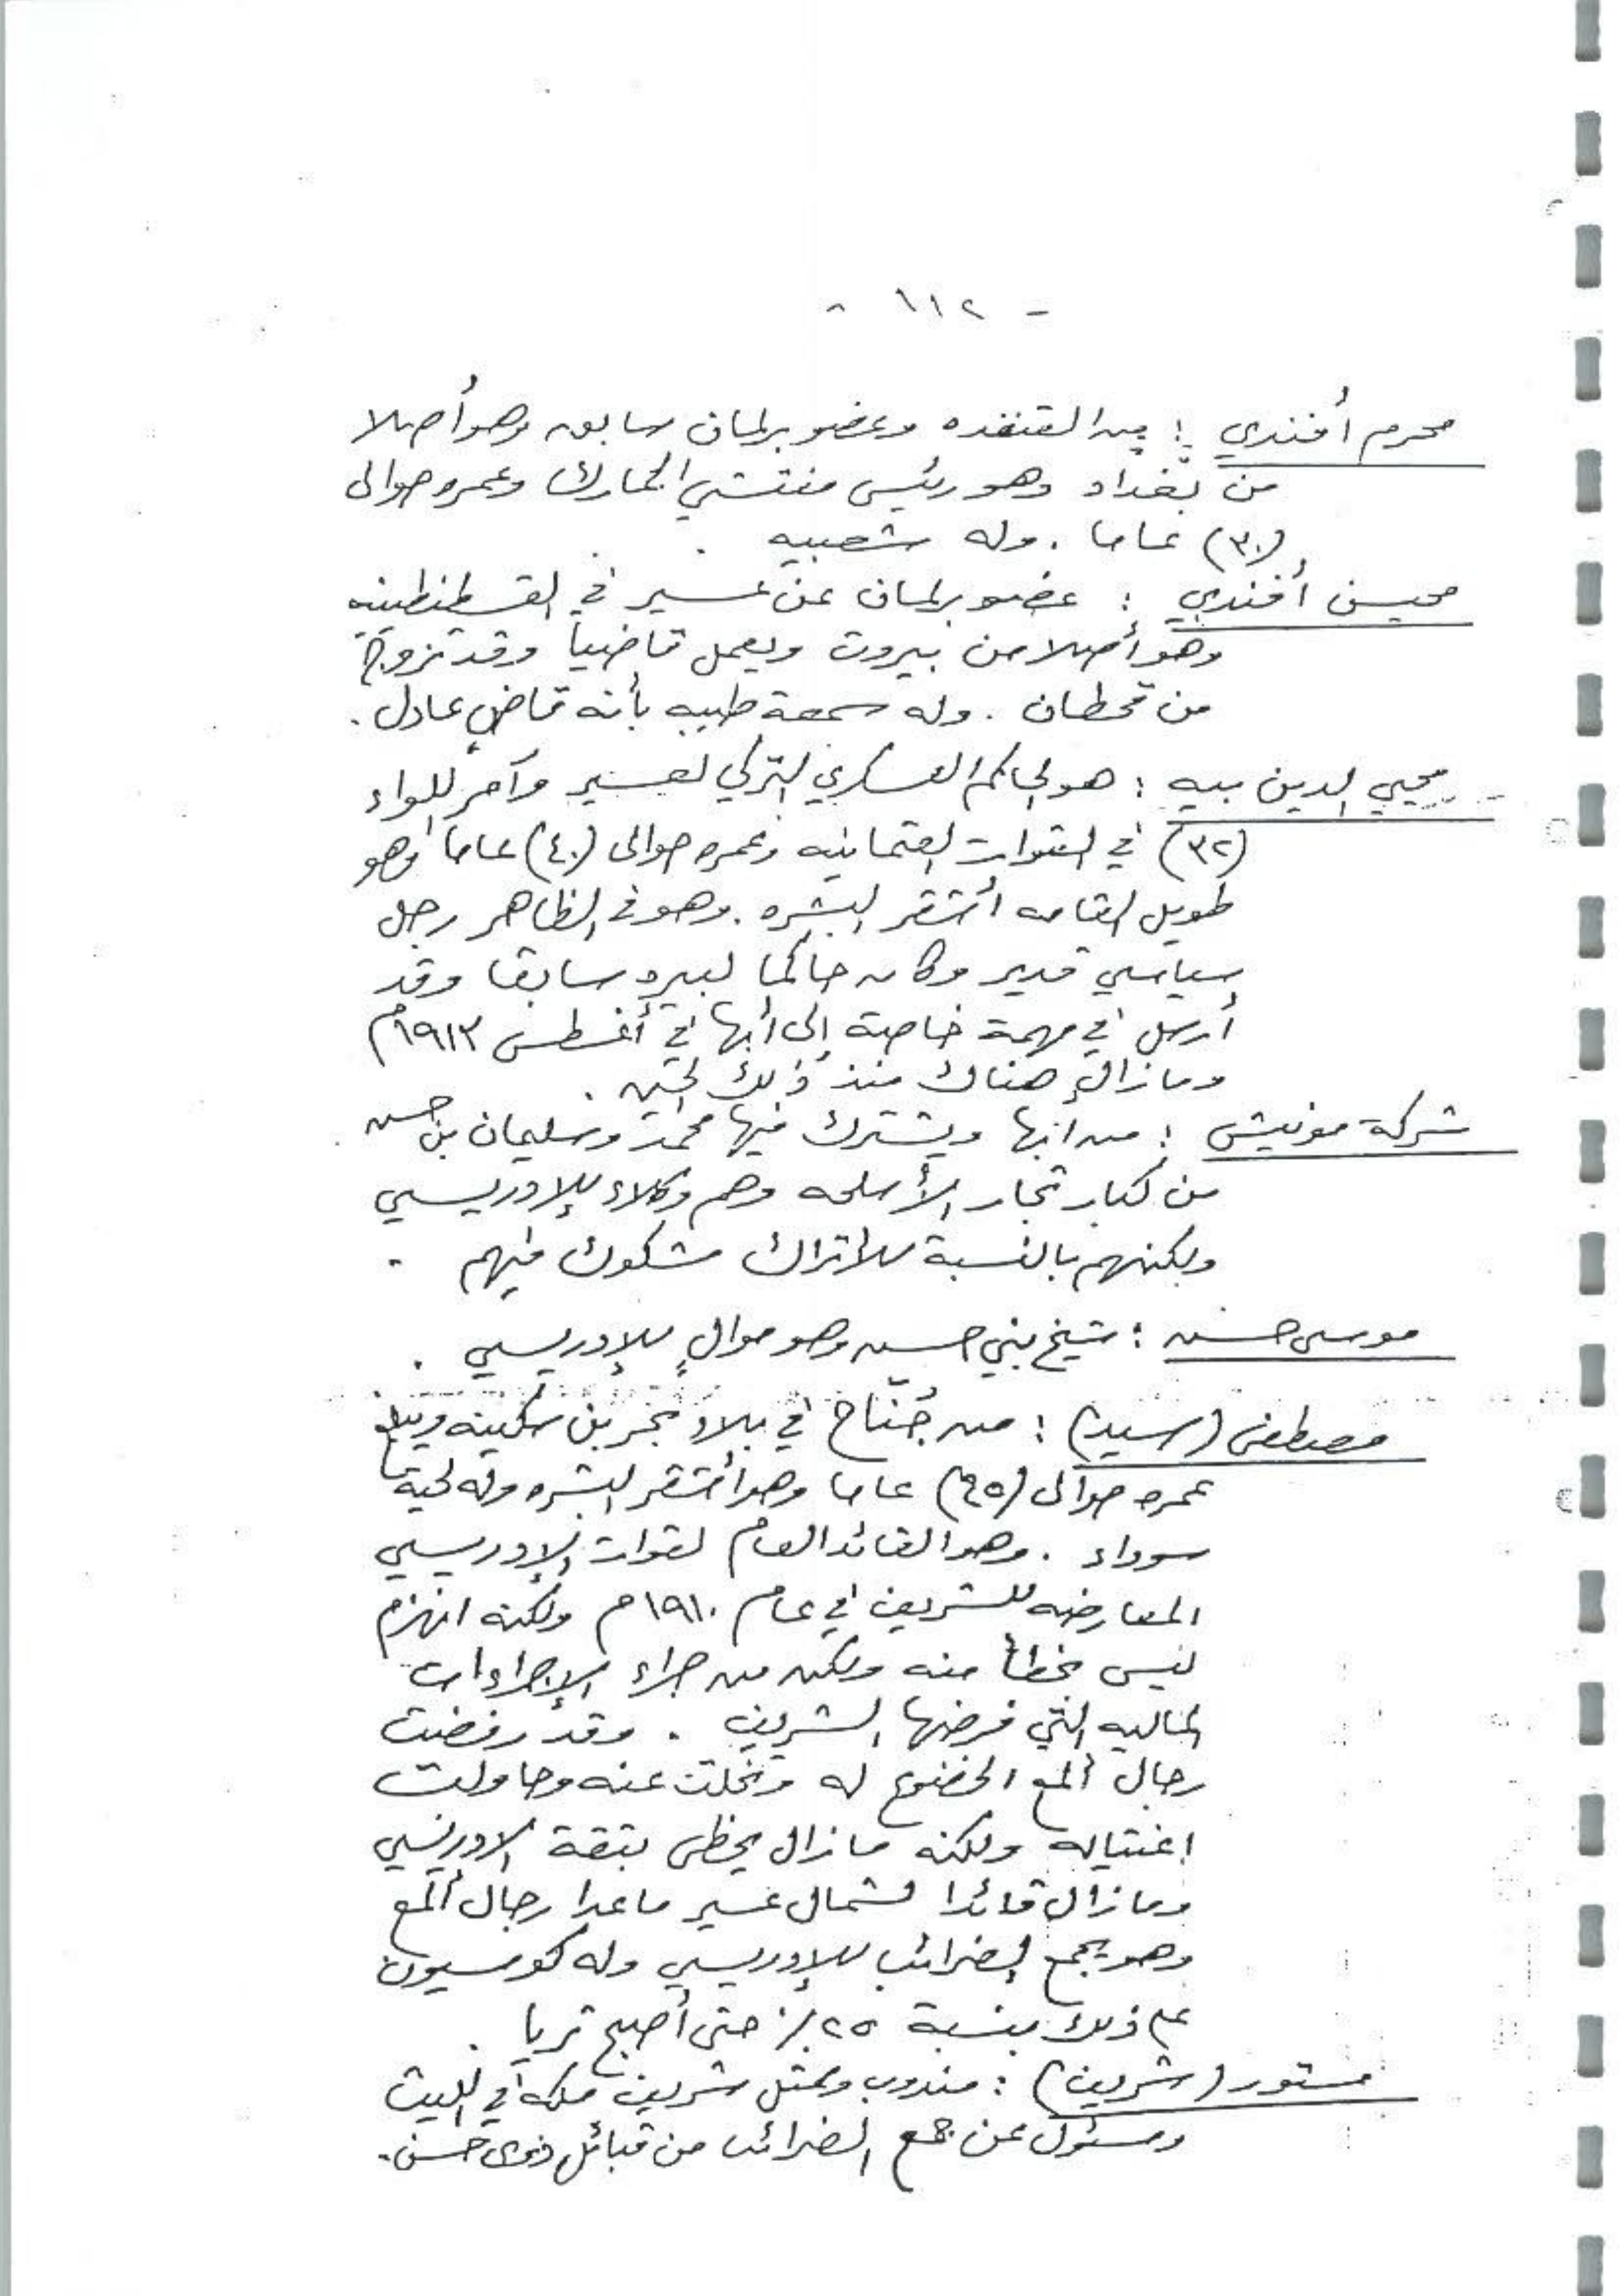 - ١١٢ -
محرم أفندي : من القنفذه وعضو برلمان سابق وهو أصلا
من بغداد وهو رئيس مفتشي الجمارك وعمره حوالى
(٣٠) عاما . وله شعبيه .
محيسن أفندي : عضو برلمان عن عسير في القسطنطينيه
وهو أصلا من بيروت ويعمل قاضياً وقد تزوج
من قحطان . وله سمعة طيبه بأنه قاضٍ عادل .
محيي الدين بيه : هو الحاكم العسكري التركي لعسير وآمر للواء
(٣٢) في القوات العثمانيه وعمره حوالى (٤٠) عاما وهو
طويل القامه أشقر البشره . وهو في الظاهر رجل
سياسي قدير وكان حاكما سابقا وقد
أرسل في مهمة خاصة إلى أبها في أغسطس ١٩١٣م
ومازال هناك منذ ذلك الحين .
شركة مونيش : من ابها ويشترك فيها محمد وسليمان بن حسن
من كبار تجار الأسلحه وهم وكلاء للإدريسي
ولكنهم بالنسبة للأتراك مشكوك فيهم .
موسى حسن : شيخ بني حسن وهو موالٍ للإدريسي .
مصطفى (سيد) : من جُنّاح في بلاد بحر بن سكينه ويبلغ
عمره حوالى (٤٥) عاما وهو أشقر البشره وله لحية
سوداء . وهو القائد العام لقوات الإدريسي
المعارضه للشريف في عام ١٩١٠م ولكنه انهزم
ليس بخطأ منه ولكن من جراء الإجراءات
الماليه التي فرضها الشريف . وقد رفضت
رجال ألمع الخضوع له وتخلت عنه وحاولت
اغتياله ولكنه مازال يحظى بثقة الادريسي
ومازال قائدا لشمال عسير ماعدا رجال ألمع
وهو يجمع الضرائب للإدريسي وله كومسيون
على ذلك بنسبة ٢٥٪ حتى أصبح ثريا .
مستور (شريف) : مندوب وممثل شريف مكه في الليث
ومسئول عن جمع الضرائب من قبائل ذوى حسن .